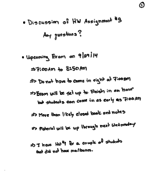 ①
• Discussion of HW Assignment #3
Any questions?
• Upcoming Exam on 9/29/14
⇒ 7:00am to 8:50am
⇒ Do not have to come in right at 7:00am
⇒ Exam will be set up to finish in an hour
but students can come in as early as 7:00am
⇒ More than likely closed book and notes
⇒ Material will be up through next Wednesday
⇒ I have HW for a couple of students
that did not have